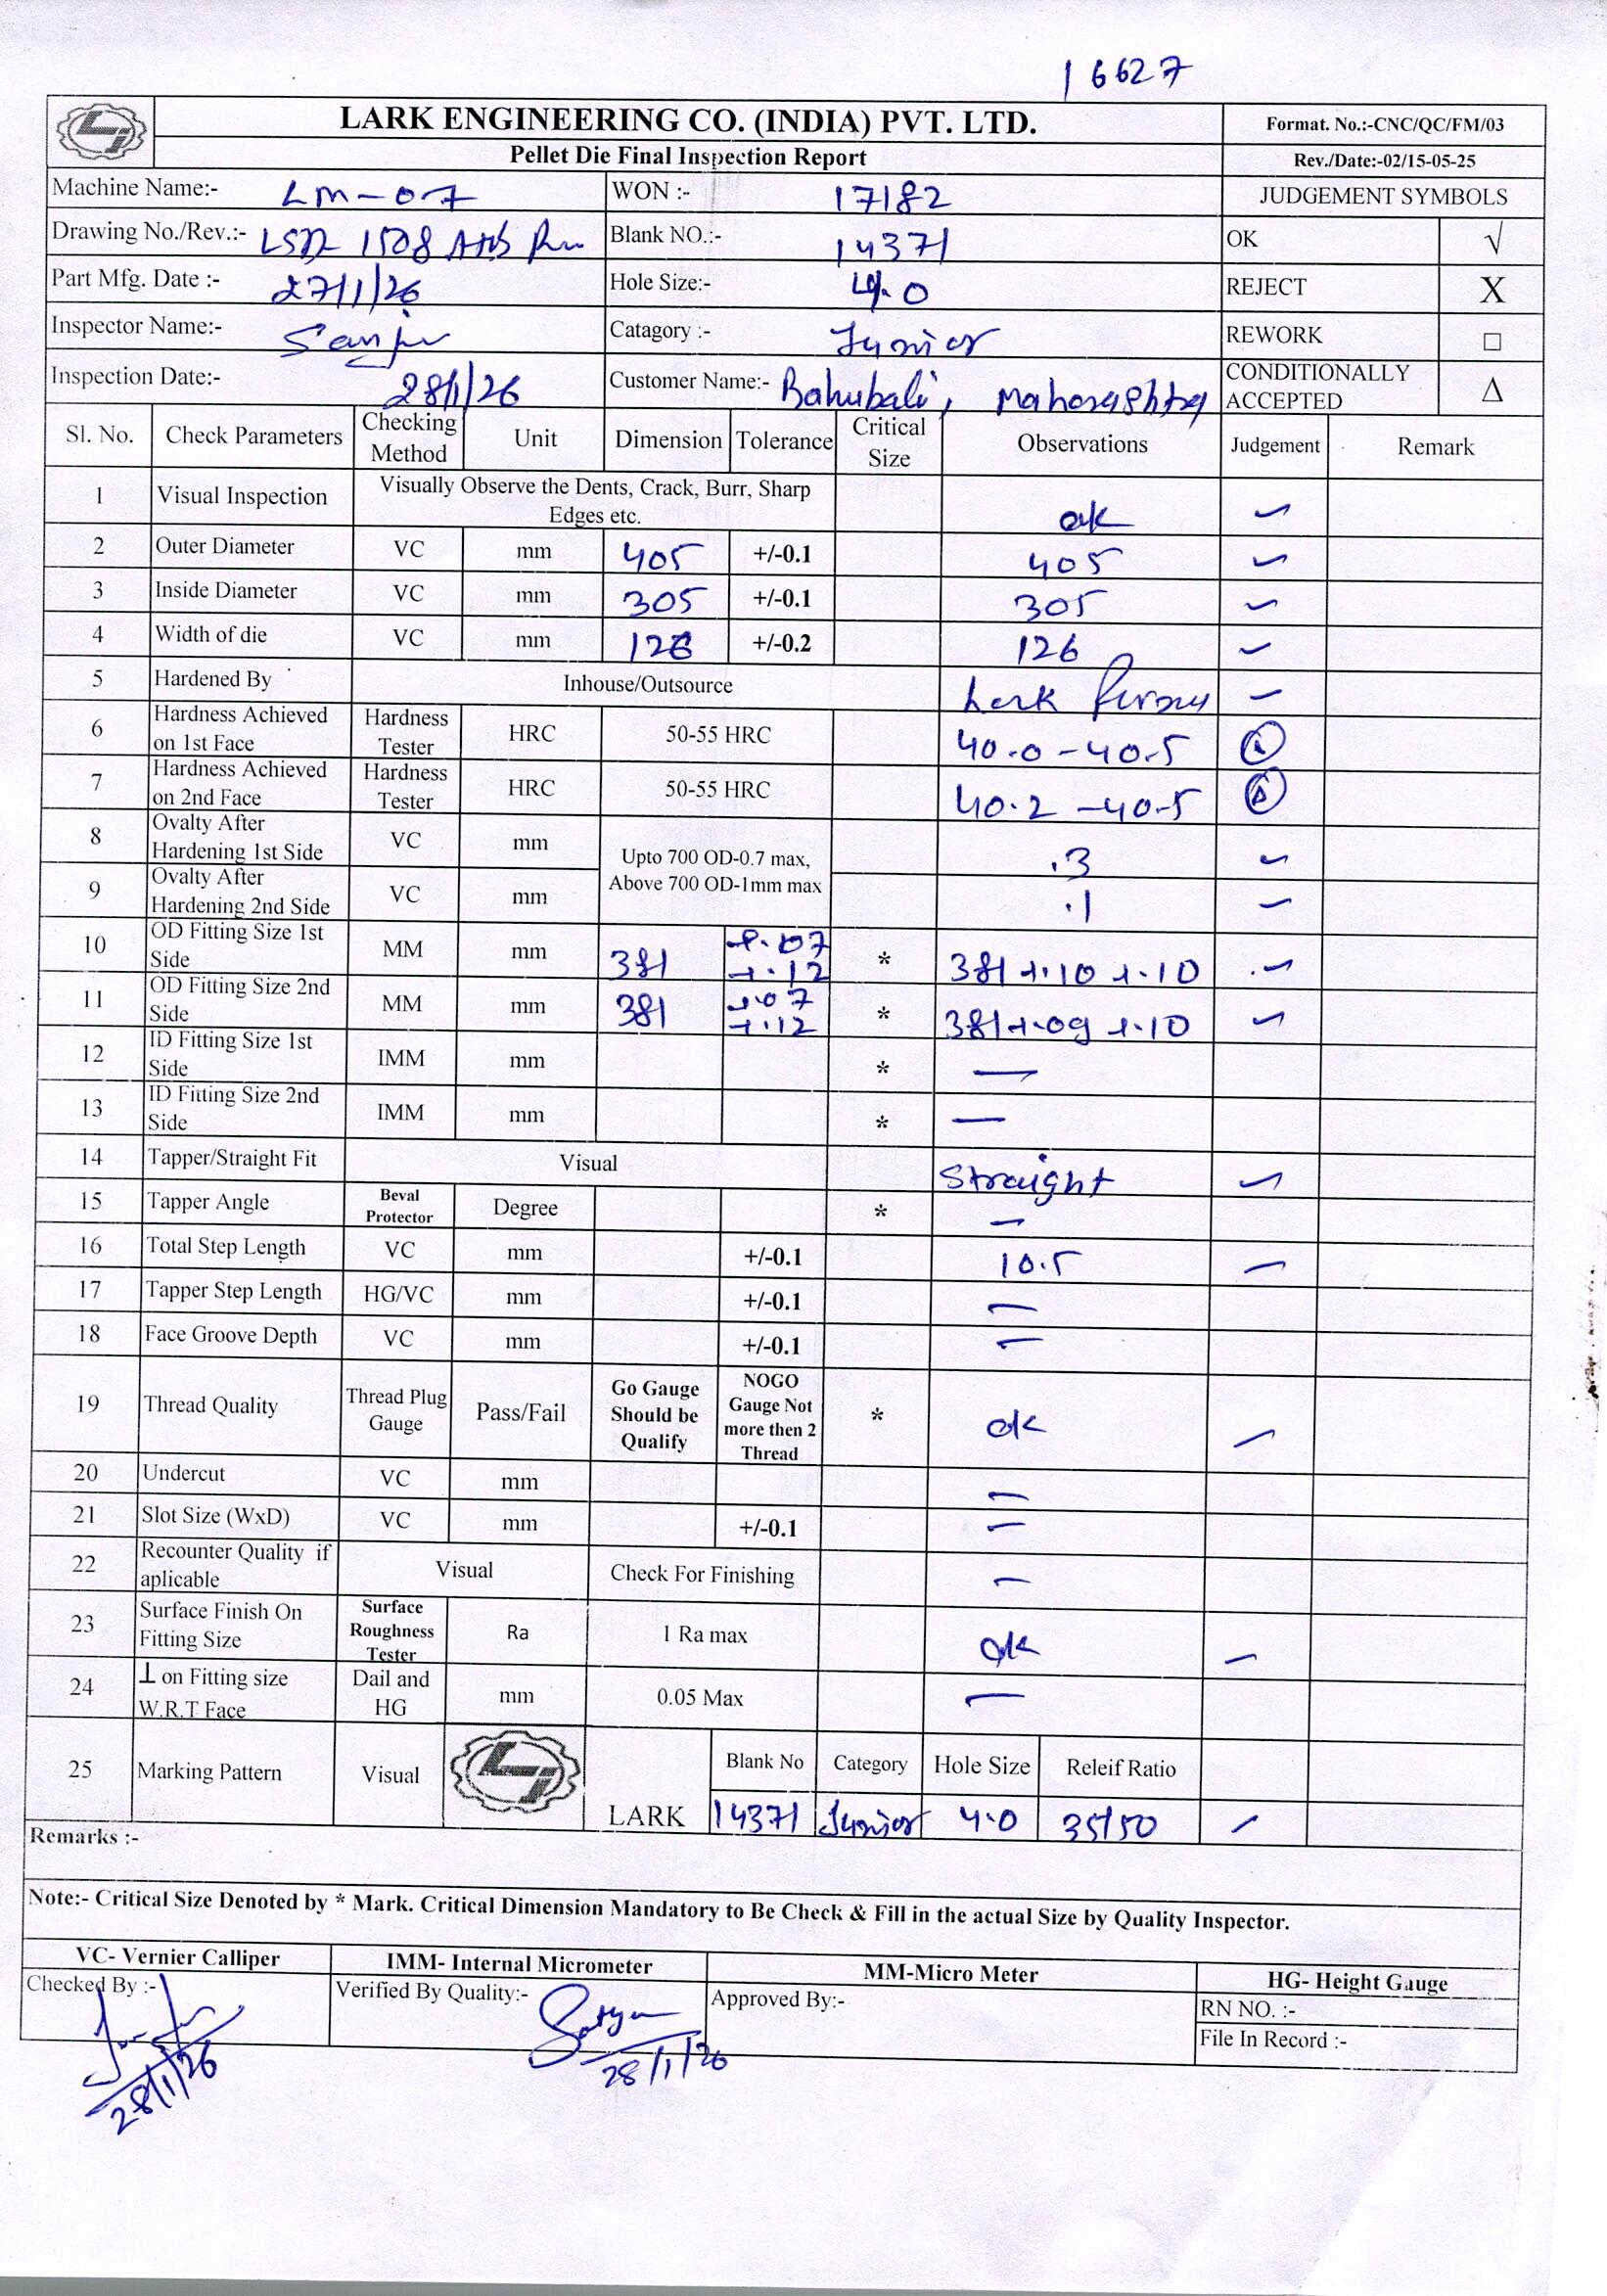 16627
LARK ENGINEERING CO. (INDIA) PVT. LTD.
Format. No.:-CNC/QC/FM/03
Pellet Die Final Inspection Report
Rev./Date:-02/15-05-25
Machine Name:- LM-07 WON :- 17182 JUDGEMENT SYMBOLS
Drawing No./Rev.:- 1508 Blank NO.:- 14371 OK √
Part Mfg. Date :- 27/1/26 Hole Size:- 4.0 REJECT X
Inspector Name:- Sanjiv Catagory :- Junior REWORK □
Inspection Date:- 28/1/26 Customer Name:- Bahubali, Maharashtra CONDITIONALLY ACCEPTED Δ
Sl. No. Check Parameters Checking Method Unit Dimension Tolerance Critical Size Observations Judgement Remark
1 Visual Inspection Visually Observe the Dents, Crack, Burr, Sharp Edges etc. ok ✓
2 Outer Diameter VC mm 405 +/-0.1 405 ✓
3 Inside Diameter VC mm 305 +/-0.1 305 ✓
4 Width of die VC mm 126 +/-0.2 126 ✓
5 Hardened By Inhouse/Outsource Lark ✓
6 Hardness Achieved on 1st Face Hardness Tester HRC 50-55 HRC 40.0-40.5 Δ
7 Hardness Achieved on 2nd Face Hardness Tester HRC 50-55 HRC 40.2-40.5 Δ
8 Ovalty After Hardening 1st Side VC mm Upto 700 OD-0.7 max, Above 700 OD-1mm max .3 ✓
9 Ovalty After Hardening 2nd Side VC mm .1 ✓
10 OD Fitting Size 1st Side MM mm 381 +.07 +.12 * 381+.10 +.10 ✓
11 OD Fitting Size 2nd Side MM mm 381 +.07 +.12 * 381+.09 +.10 ✓
12 ID Fitting Size 1st Side IMM mm * —
13 ID Fitting Size 2nd Side IMM mm * —
14 Tapper/Straight Fit Visual Straight ✓
15 Tapper Angle Beval Protector Degree * —
16 Total Step Length VC mm +/-0.1 10.5 ✓
17 Tapper Step Length HG/VC mm +/-0.1 —
18 Face Groove Depth VC mm +/-0.1 —
19 Thread Quality Thread Plug Gauge Pass/Fail Go Gauge Should be Qualify NOGO Gauge Not more then 2 Thread * ok ✓
20 Undercut VC mm —
21 Slot Size (WxD) VC mm +/-0.1 —
22 Recounter Quality if aplicable Visual Check For Finishing —
23 Surface Finish On Fitting Size Surface Roughness Tester Ra 1 Ra max ok ✓
24 ⊥ on Fitting size W.R.T Face Dail and HG mm 0.05 Max —
25 Marking Pattern Visual LARK Blank No Category Hole Size Releif Ratio
14371 Junior 4.0 35/50 ✓
Remarks :-
Note:- Critical Size Denoted by * Mark. Critical Dimension Mandatory to Be Check & Fill in the actual Size by Quality Inspector.
VC- Vernier Calliper IMM- Internal Micrometer MM-Micro Meter HG- Height Gauge
Checked By :- Verified By Quality:- Satyam Approved By:- RN NO. :-
File In Record :-
28/1/26 28/1/26